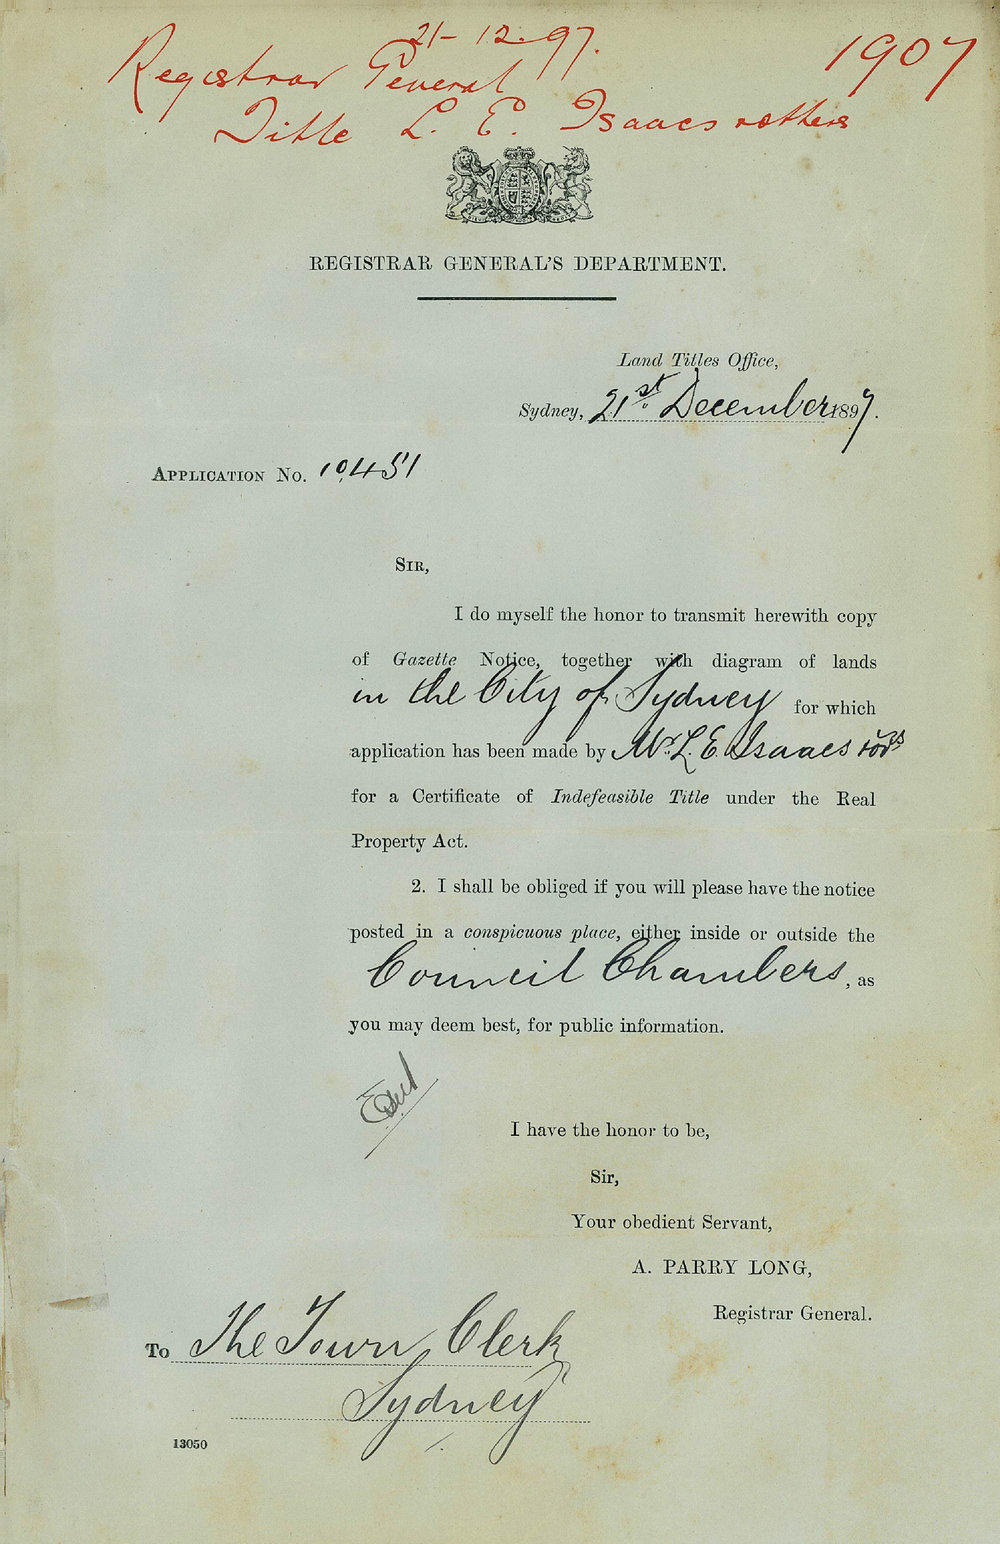 21-12.97.
1907
Registrar General
Title L. E. Isaacs & others
REGISTRAR GENERAL'S DEPARTMENT.
Land Titles Office,
Sydney, 21st December 1897.
APPLICATION No. 10,451
SIR,
I do myself the honor to transmit herewith copy
of Gazette Notice, together with diagram of lands
in the City of Sydney for which
application has been made by Mr. L. E. Isaacs & ors
for a Certificate of Indefeasible Title under the Real
Property Act.
2. I shall be obliged if you will please have the notice
posted in a conspicuous place, either inside or outside the
Council Chambers, as
you may deem best, for public information.
I have the honor to be,
Sir,
Your obedient Servant,
A. PARRY LONG,
Registrar General.
To The Town Clerk
Sydney
13050